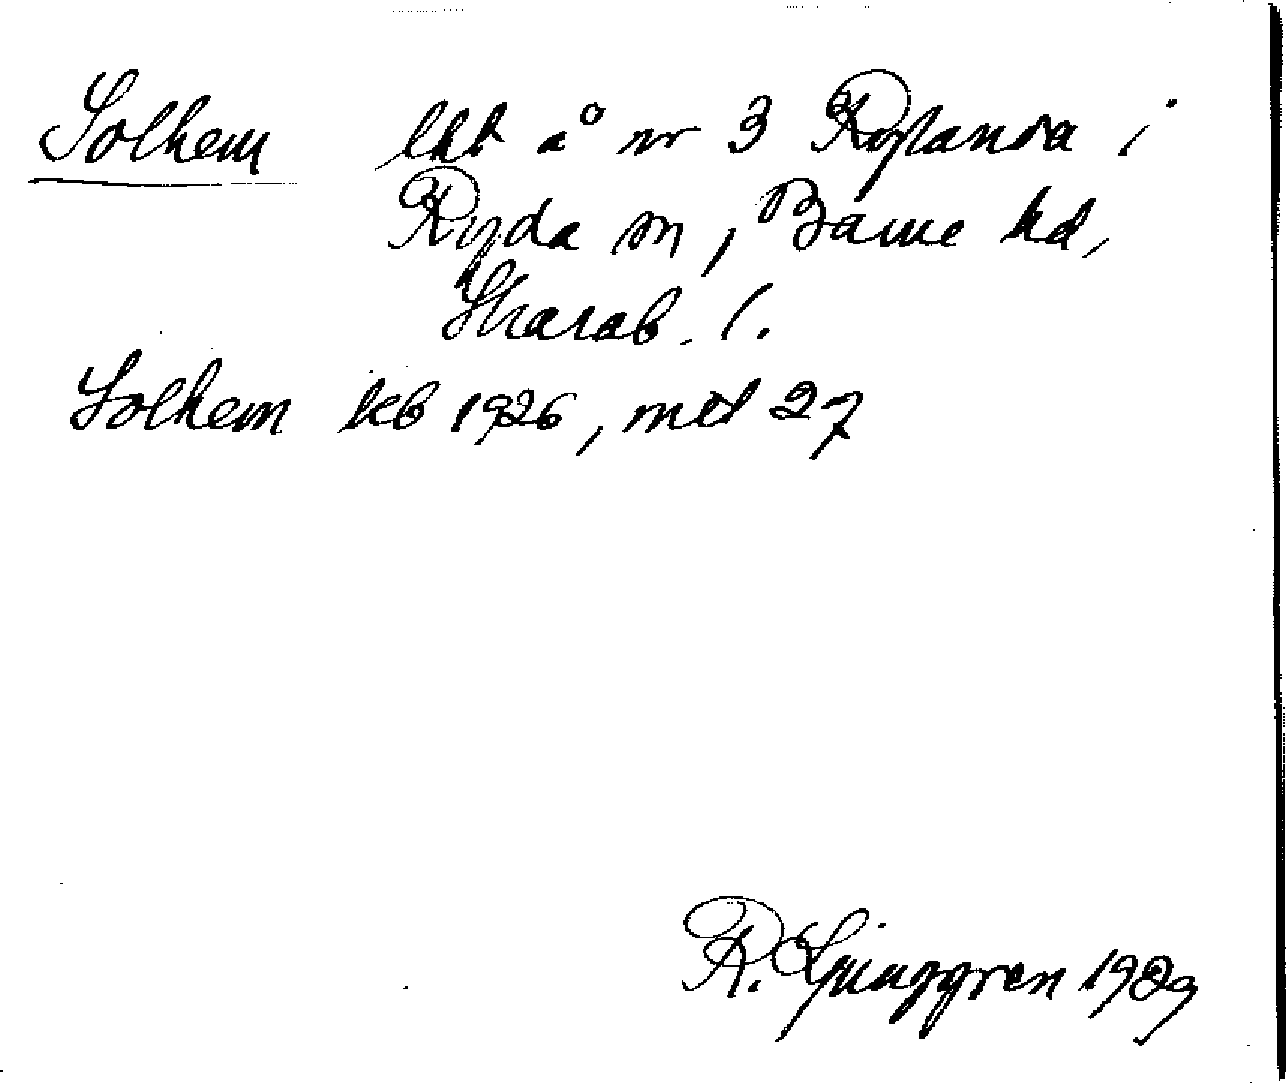 Solhem lht å nr 3 Rylanda i
Ryda sn, Barne hd,
Skarab. l.
Solhem kb 1926, mtl 27
R. Ljunggren 1929